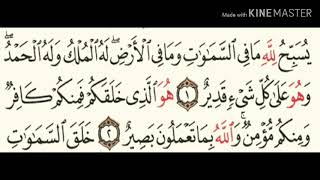 Made with KINEMASTER
يُسَبِّحُ لِلَّهِ مَا فِى السَّمَٰوَٰتِ وَمَا فِى الْأَرْضِ ۖ لَهُ الْمُلْكُ وَلَهُ الْحَمْدُ ۖ
وَهُوَ عَلَىٰ كُلِّ شَىْءٍ قَدِيرٌ ١ هُوَ الَّذِى خَلَقَكُمْ فَمِنكُمْ كَافِرٌ
وَمِنكُم مُّؤْمِنٌ ۚ وَاللَّهُ بِمَا تَعْمَلُونَ بَصِيرٌ ٢ خَلَقَ السَّمَٰوَٰتِ